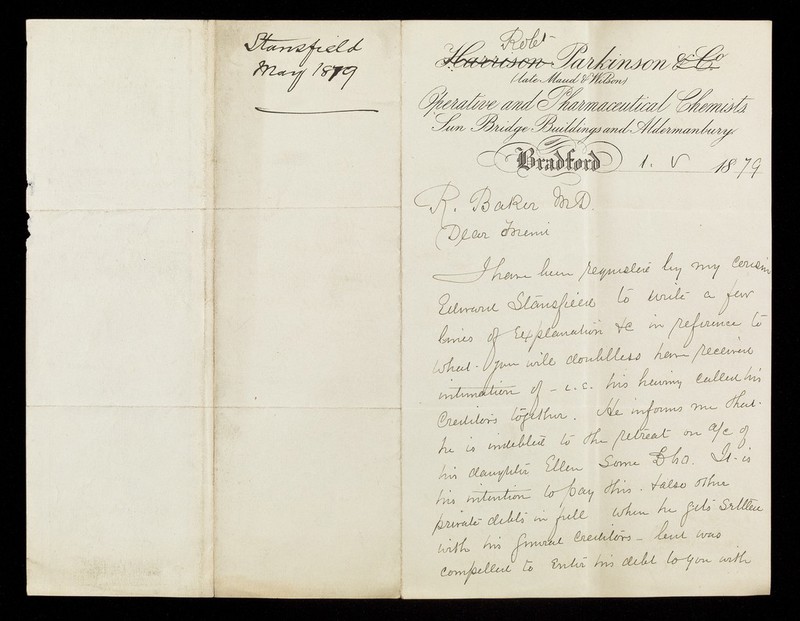 Stansfield
May 1879
Robt
Harrison Parkinson & Co
(late Maud & Wilson)
Operative and Pharmaceutical Chemists
Sun Bridge Buildings and Aldermanbury
Bradford 1. V 1879
R. Baker MD.
Dear Friend
I have been requested by my cousin
Edward Stansfield to write a few
lines of Explanation &c in reference to
what you will doubtless have received
intimation of - i.e. his having called his
Creditors together. He informs me that
he is indebted to the retreat on a/c of
his daughter Ellen Some It is
his intention to pay this & also other
private debts in full when he gets Settled
with his general Creditors - but was
compelled to Enter his debt to you with